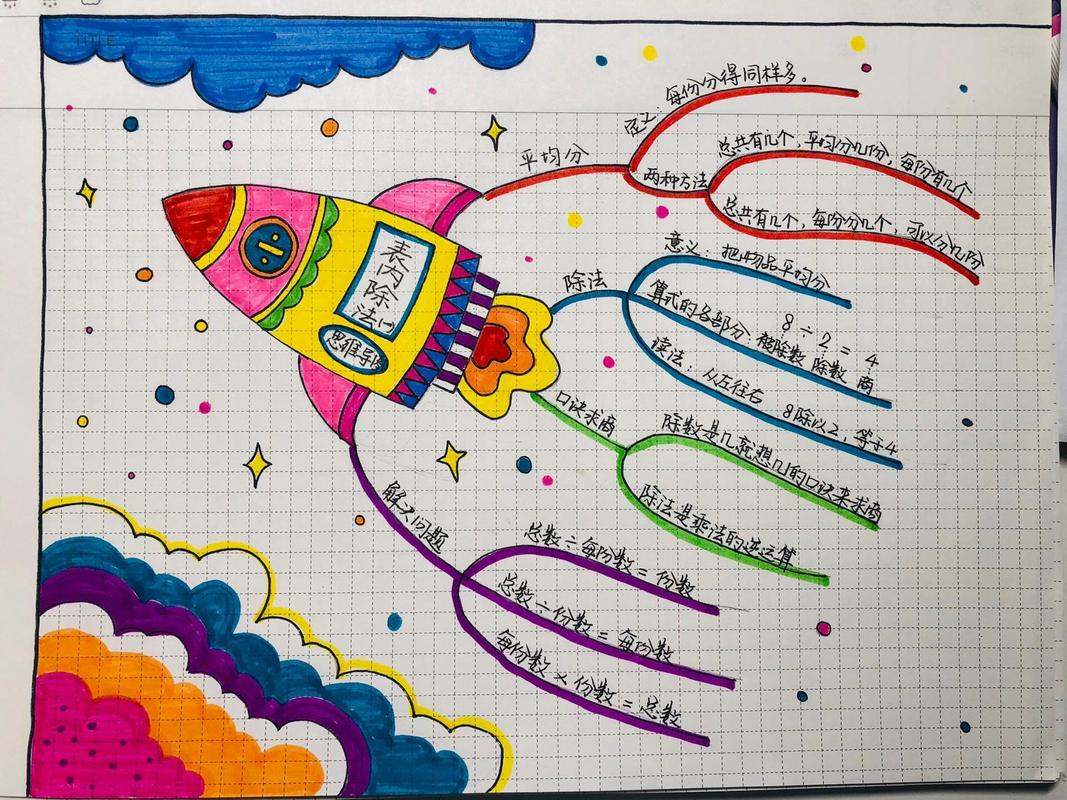 TITLE
表内除法(一)
思维导图
平均分
定义：每份分得同样多。
两种方法
总共有几个，平均分几份，每份有几个
总共有几个，每份分几个，可以分几份
除法
意义：把物品平均分
算式的各部分：
8 ÷ 2 = 4
被除数 除数 商
读法：从左往右 8除以2，等于4
口诀求商
除数是几就想几的口诀来求商
除法是乘法的逆运算
解决问题
总数÷每份数＝份数
总数÷份数＝每份数
每份数×份数＝总数